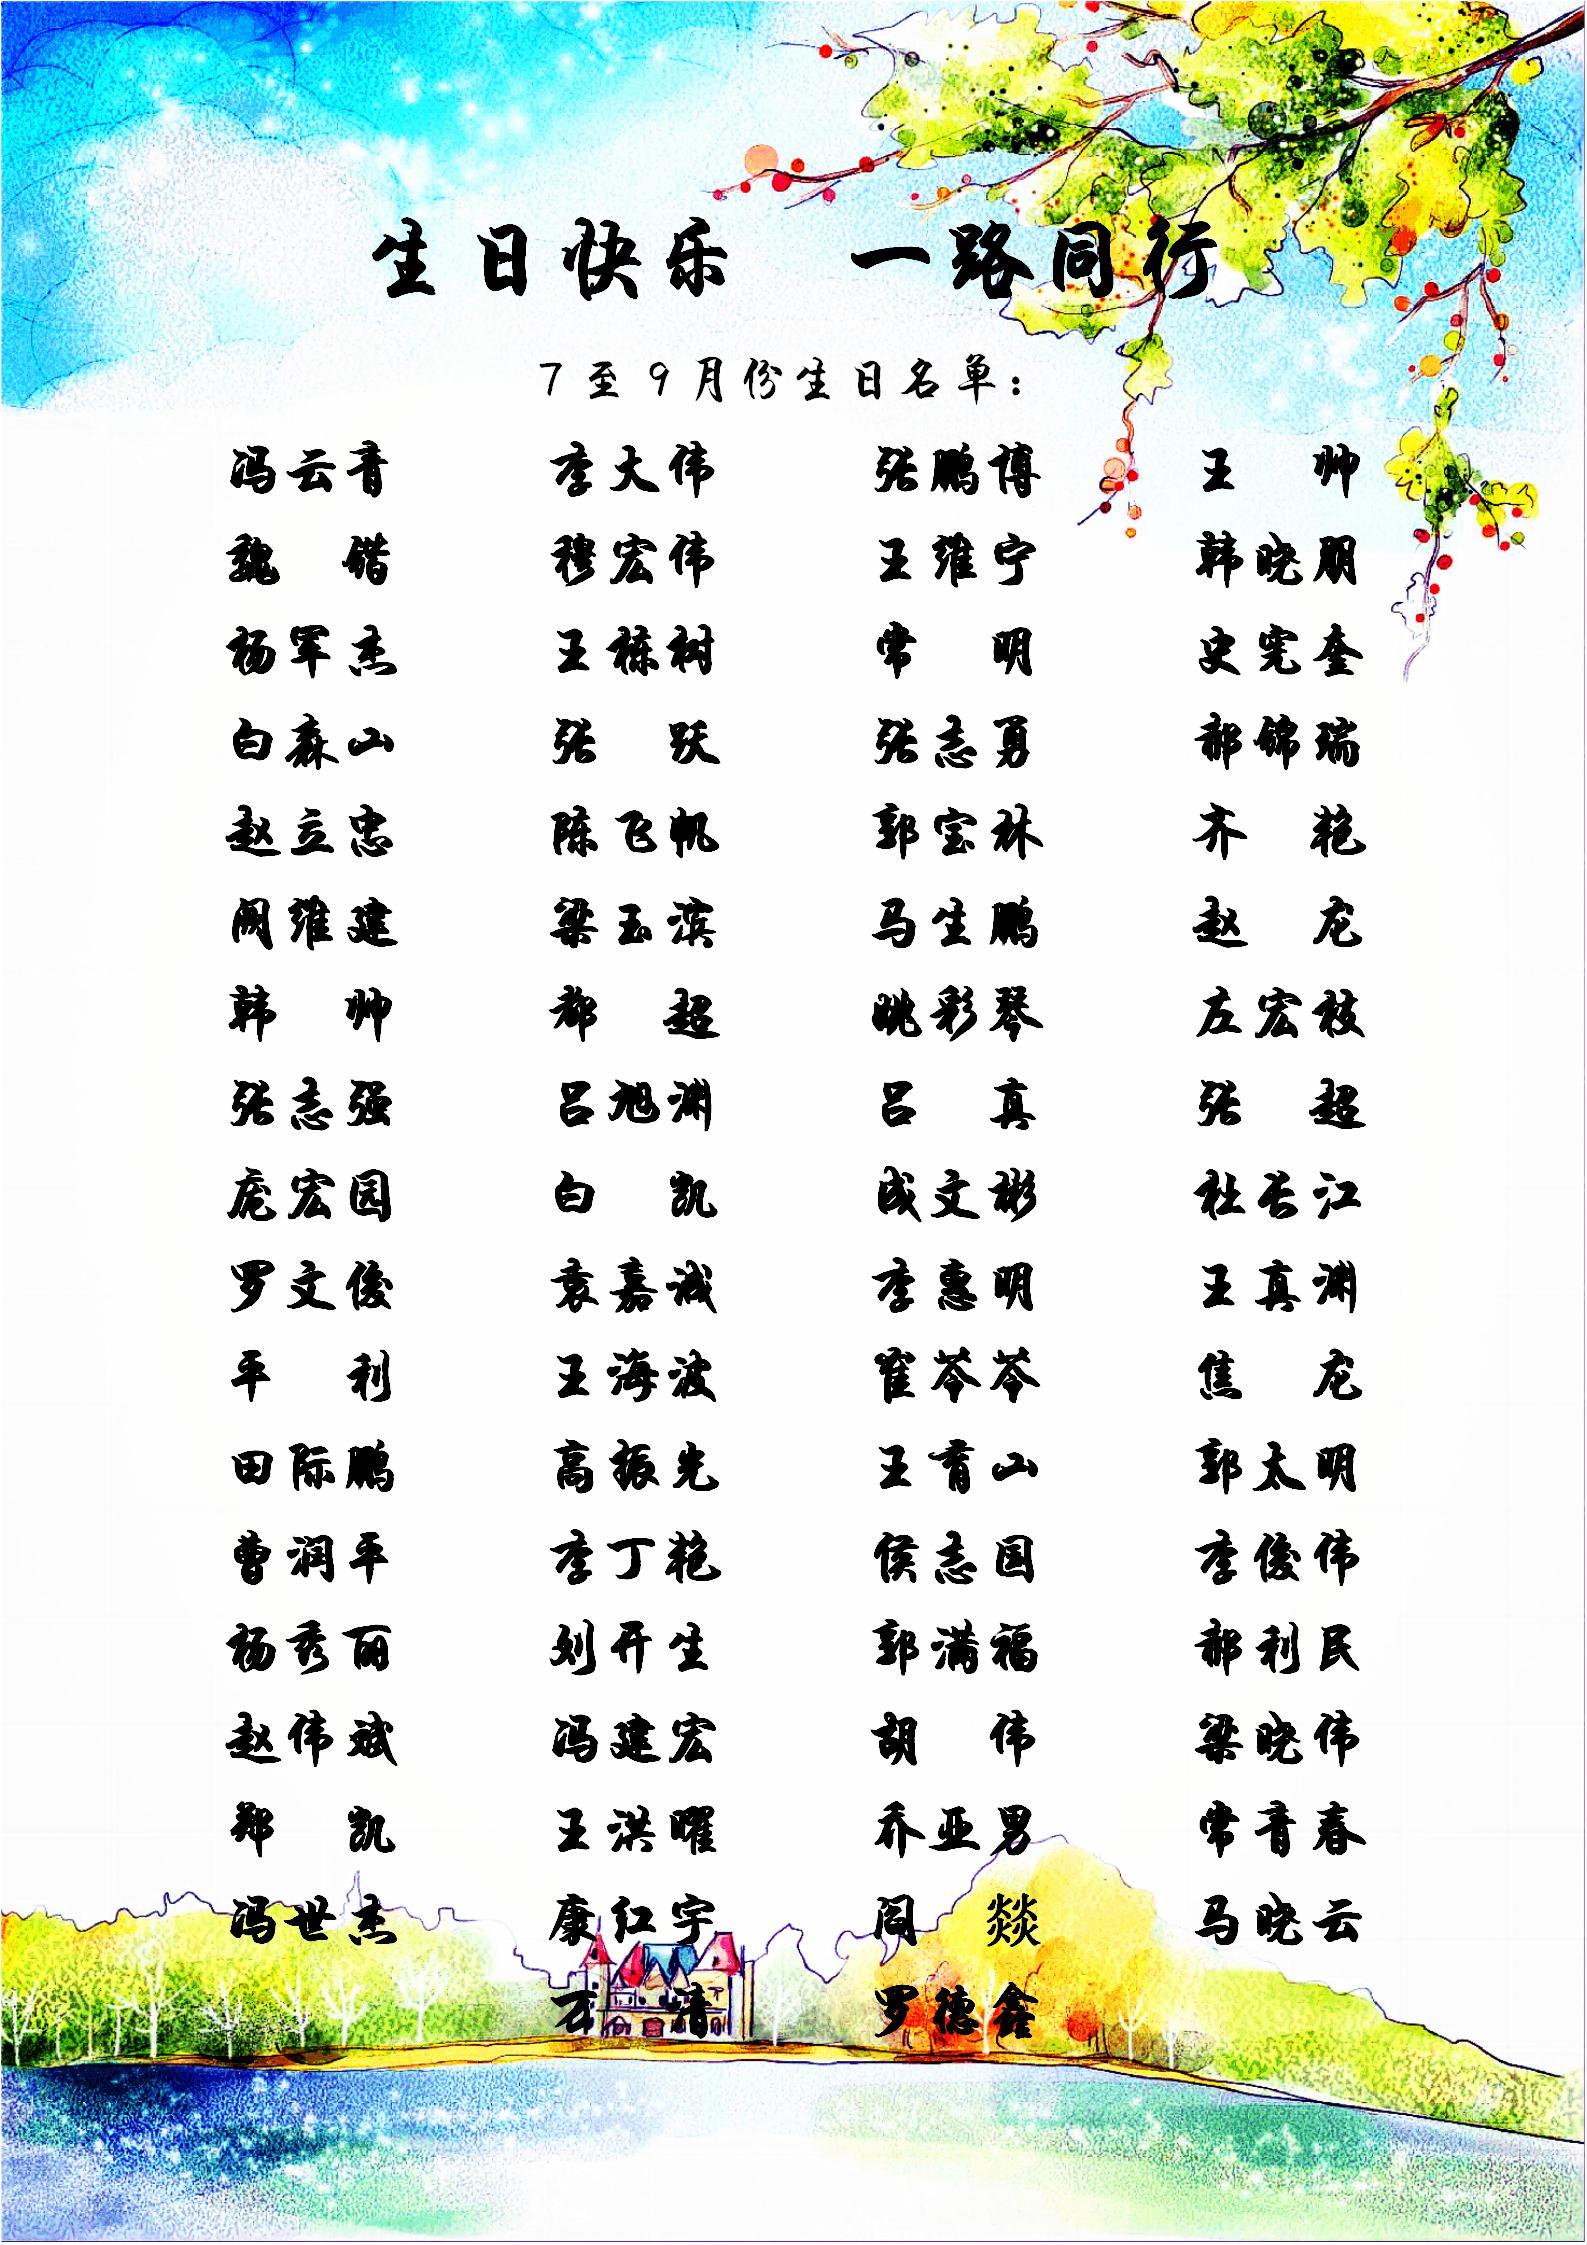 生日快乐 一路同行
7至9月份生日名单：
冯云音 李大伟 张鹏博 王 帅
魏 锴 穆宏伟 王维宁 韩晓朋
杨军杰 王栋树 常 明 史宪奎
白森山 张 跃 张志勇 郝锦瑞
赵立忠 陈飞帆 郭宝林 齐 艳
阙维建 梁玉滨 马生鹏 赵 龙
韩 帅 郗 超 姚彩琴 左宏枝
张志强 吕旭渊 吕 真 张 超
庞宏园 白 凯 成文彬 杜长江
罗文俊 袁嘉诚 李惠明 王真渊
平 利 王海波 崔苓苓 焦 龙
田际鹏 高振光 王育山 郭太明
曹润平 李丁艳 侯志国 李俊伟
杨秀丽 刘开生 郭满福 郝利民
赵伟斌 冯建宏 胡 伟 梁晓伟
郑 凯 王洪曜 乔亚男 常青春
冯世杰 康红宇 阎 燚 马晓云
万 清 罗德鑫